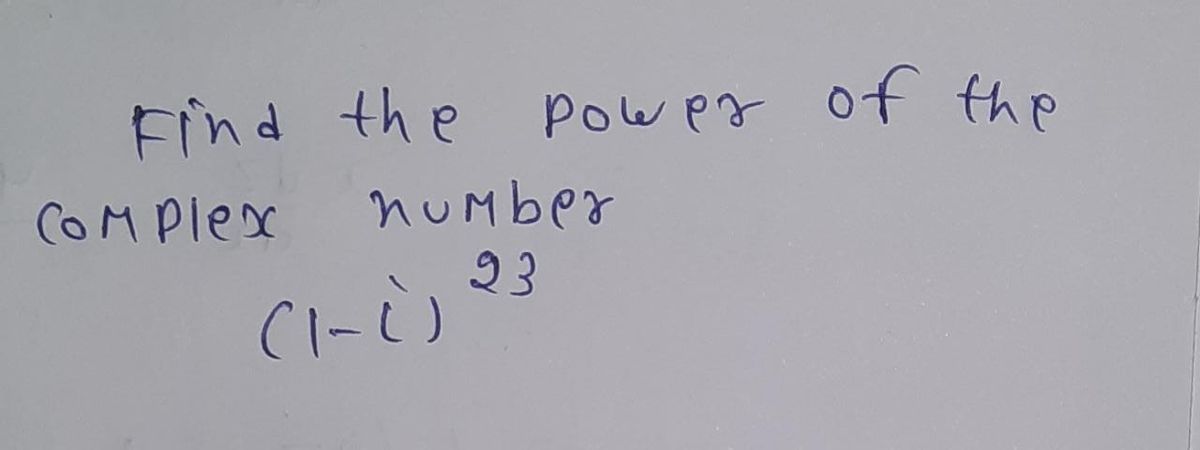 Find the power of the
complex number
(1-i)²³